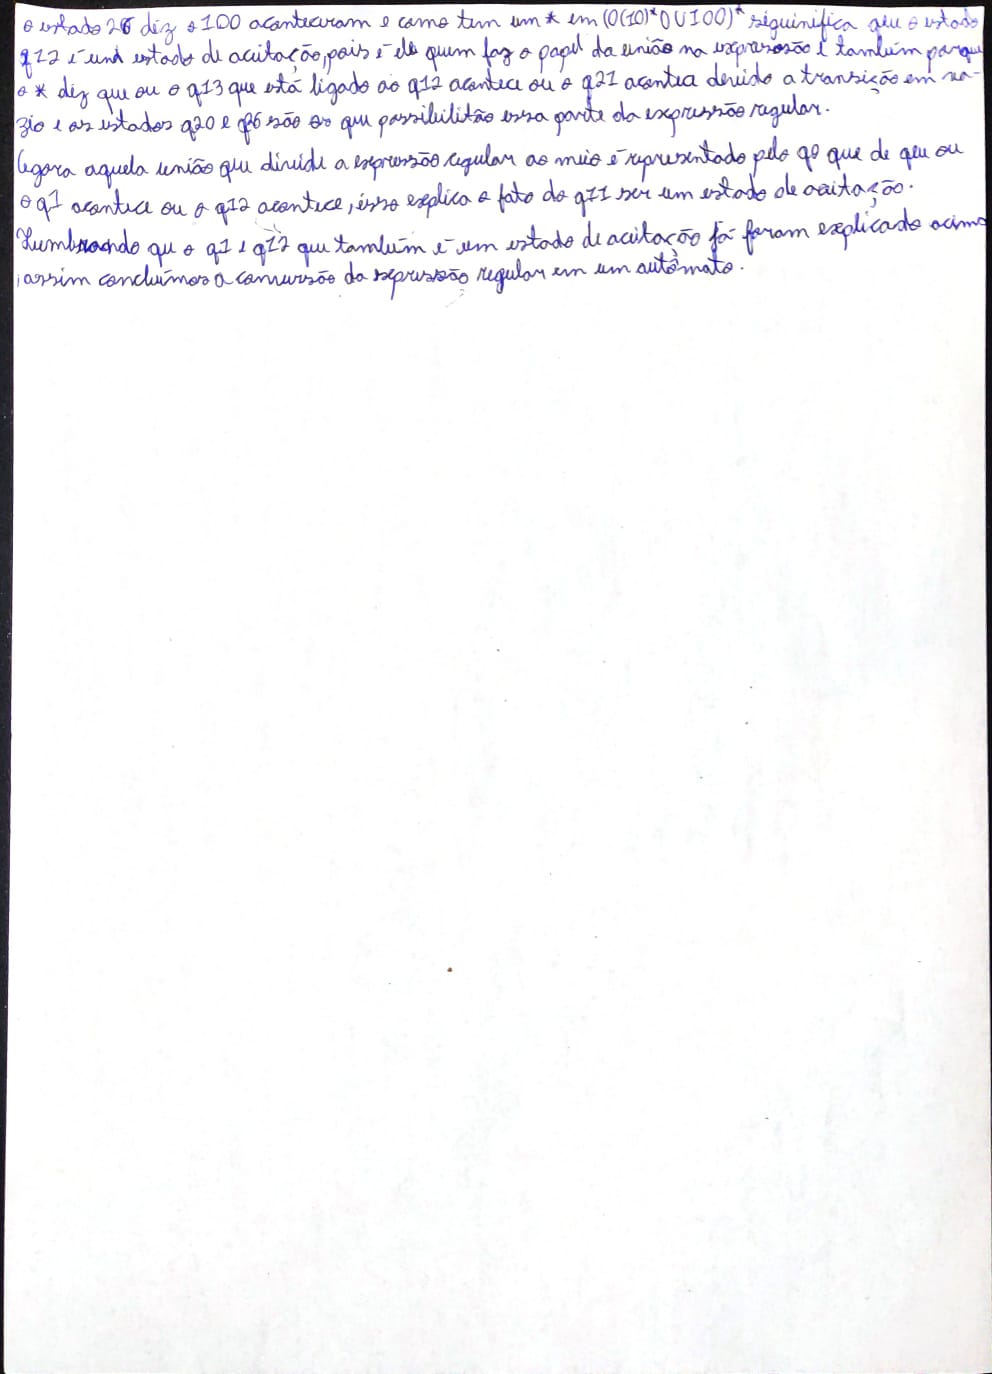 o estado 26 diz o 100 aconteceram e como tem um * em (0(10)*0U100)* siguinifica qeu o estado
q12 é um estado de aceitação, pois é ele quem faz o papel da união na expressão e também porque
o * diz que ou o q13 que está ligado ao q12 acontece ou o q21 acontece devido a transição em va-
zio e os estados q20 e q26 são os que possibilitão essa parte da expressão regular.
Agora aquela união que divide a expressão regular ao meio é representado pelo q0 que de qeu ou
o q1 acontece ou o q12 acontece, isso explica o fato do q11 ser um estado de aceitação.
Lembrando que o q1 e q12 que também é um estado de aceitação já foram explicado acima
, assim concluímos a conversão da expressão regular em um autômato.